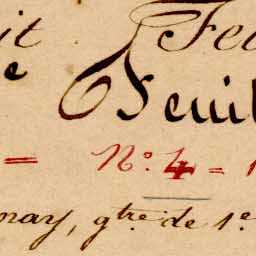 it Feu
e Feuil
= N.º 4 = 1
may, gtre de 1e